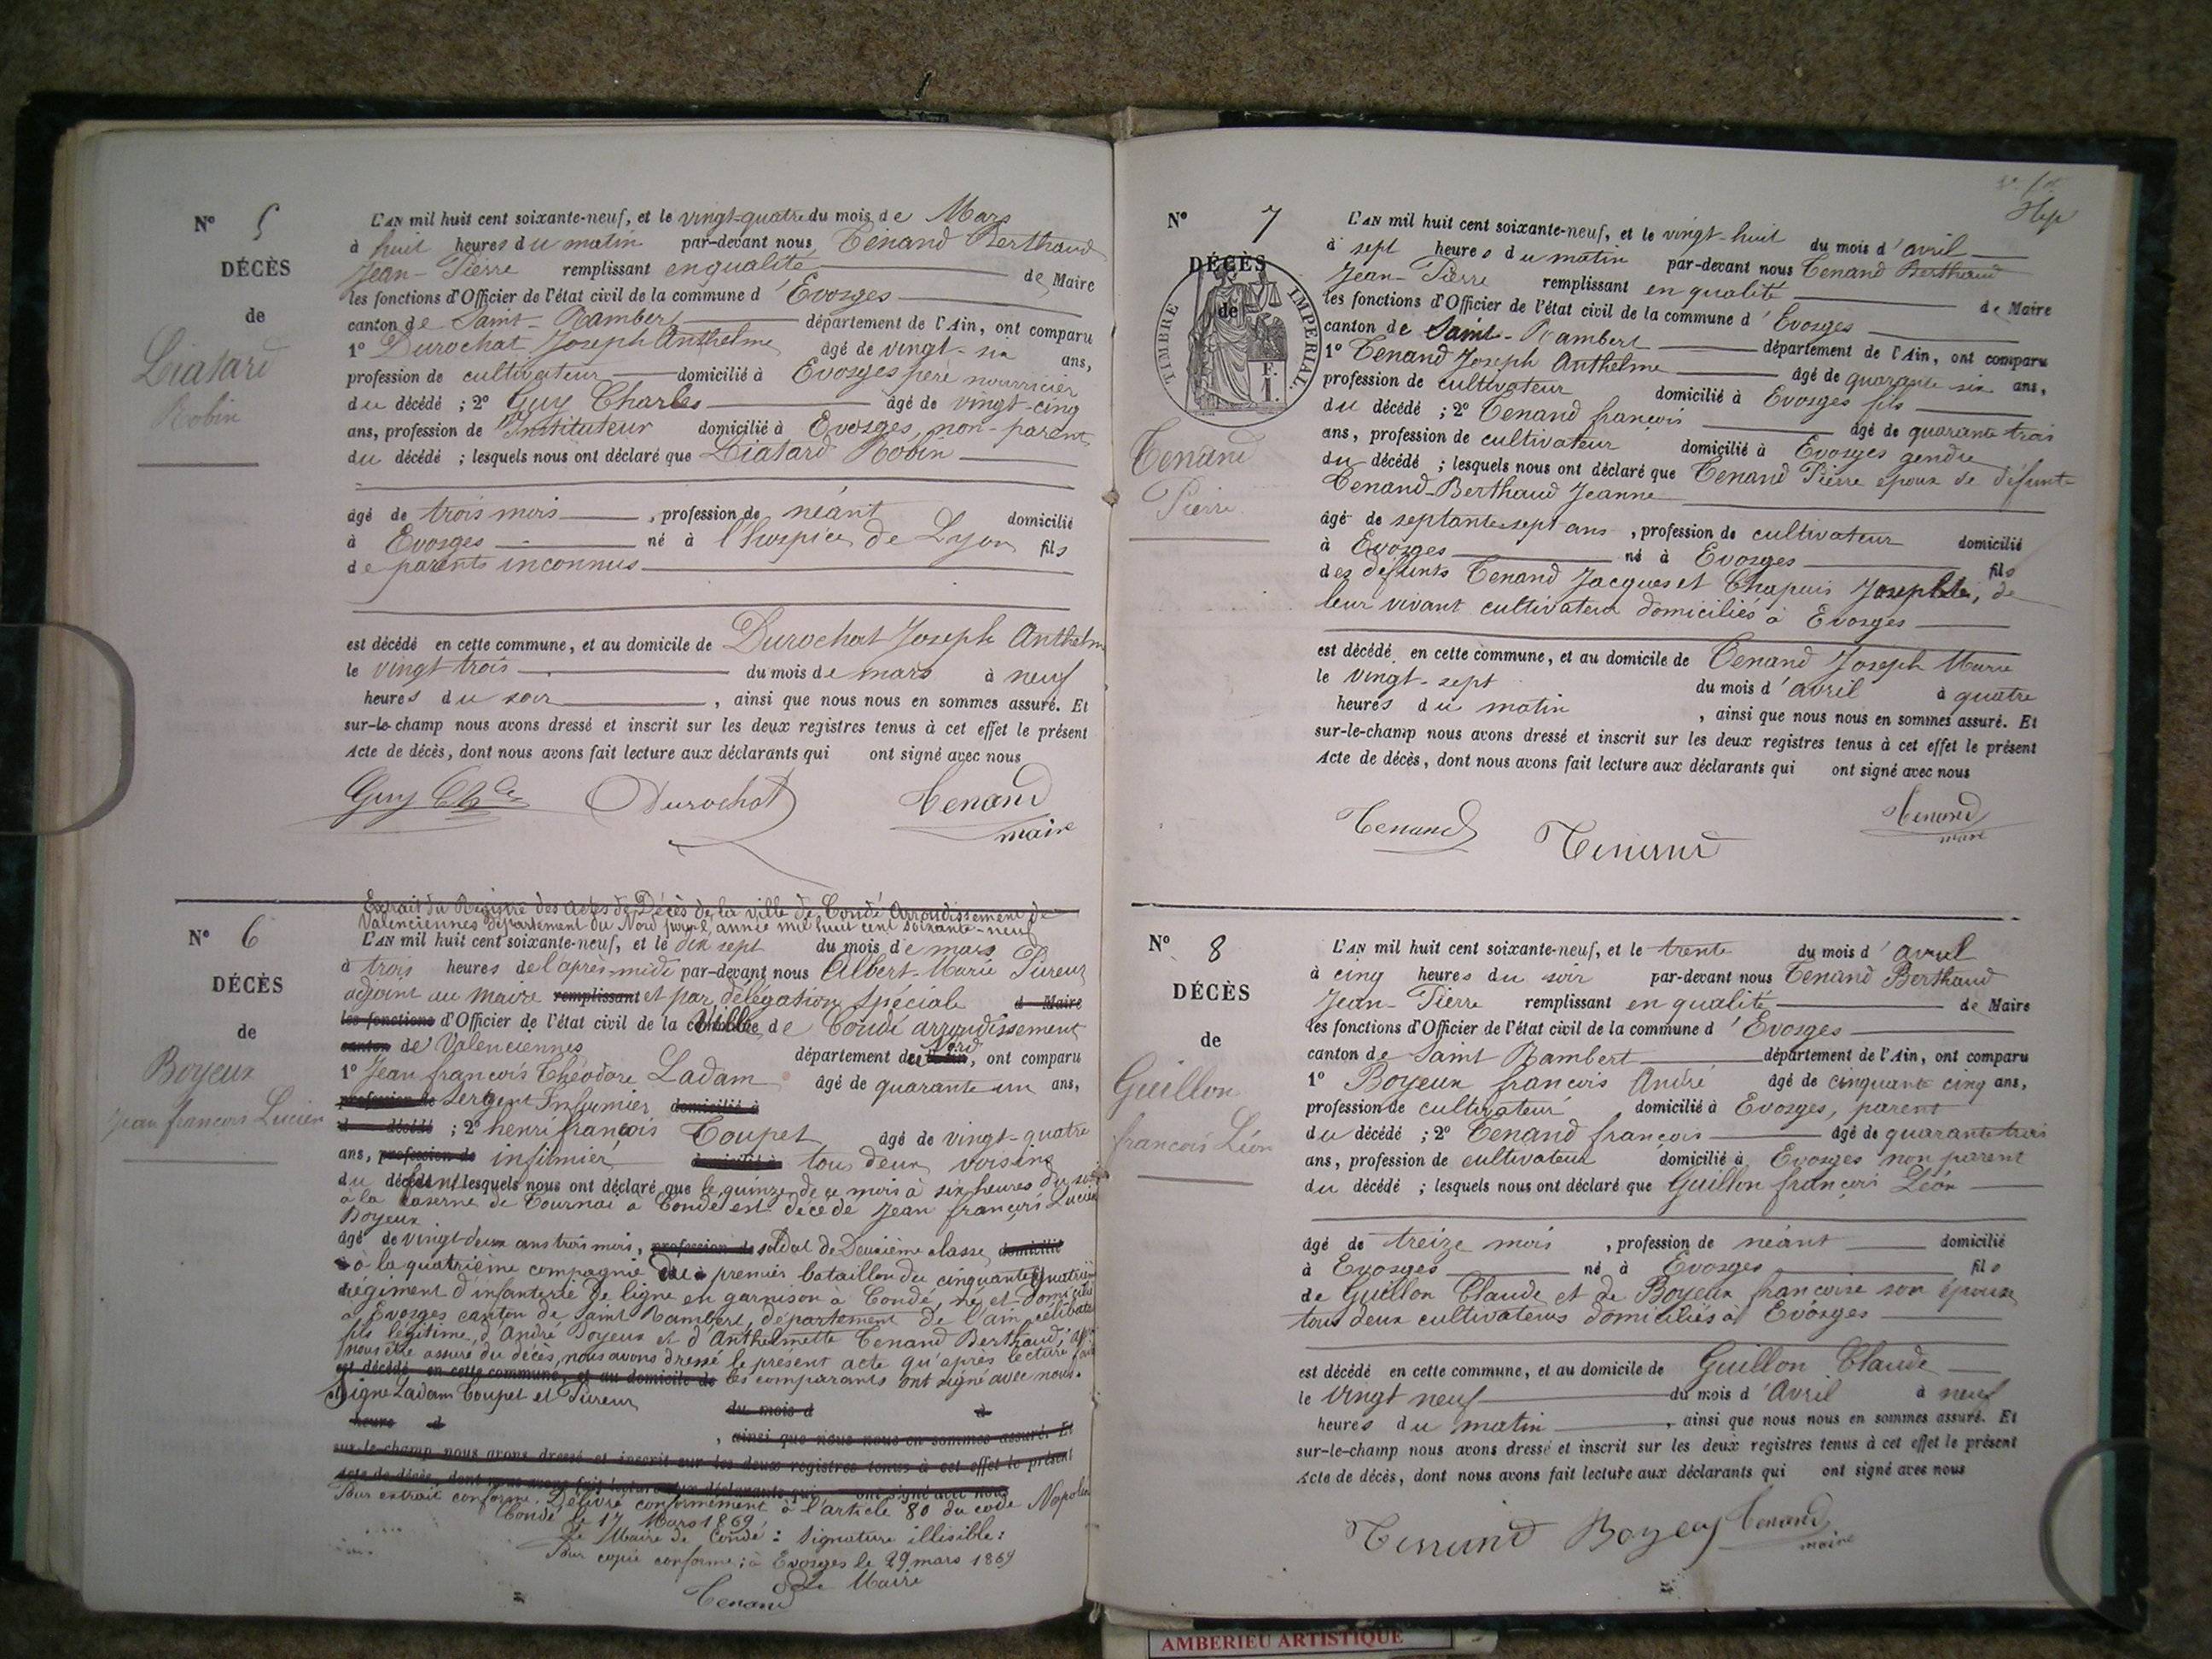 N° 5
DÉCÈS
de
Liatard
Robin
L'AN mil huit cent soixante-neuf, et le vingt-quatre du mois de Mars
à huit heures du matin par-devant nous Tenand Berthaud
Jean-Pierre remplissant en qualité de Maire
les fonctions d'Officier de l'état civil de la commune d'Evosges
canton de Saint-Rambert département de l'Ain, ont comparu
1° Durochat Joseph Anthelme âgé de vingt-six ans,
profession de cultivateur domicilié à Evosges père nourricier
du décédé ; 2° Guy Charles âgé de vingt-cinq
ans, profession de Instituteur domicilié à Evosges, non-parent
du décédé ; lesquels nous ont déclaré que Liatard Robin
âgé de trois mois, profession de néant domicilié
à Evosges né à l'hospice de Lyon fils
de parents inconnus
est décédé en cette commune, et au domicile de Durochat Joseph Anthelm
le vingt trois du mois de mars à neuf
heures du soir, ainsi que nous nous en sommes assuré. Et
sur-le-champ nous avons dressé et inscrit sur les deux registres tenus à cet effet le présent
Acte de décès, dont nous avons fait lecture aux déclarants qui ont signé avec nous
Guy Ch Durochat Tenand
maire
N° 6
DÉCÈS
de
Boyeux
Jean françois Lucien
Extrait du Registre des Actes de Décès de la ville de Condé Arrondissement de
Valenciennes département du Nord pour l'année mil huit cent soixante-neuf
L'AN mil huit cent soixante-neuf, et le dix sept du mois de mars
à trois heures de l'après-midi par-devant nous Albert-Marie Pureur
adjoint au maire remplissant et par délégation spéciale d Maire
les fonctions d'Officier de l'état civil de la Ville de Condé arrondissement
canton de Valenciennes département du Nord, ont comparu
1° Jean françois Théodore Ladam âgé de quarante un ans,
profession de Sergent Infirmier domicilié à
d décédé ; 2° henri françois Toupet âgé de vingt-quatre
ans, profession de infirmier domicilié à tous deux voisins
du défunt lesquels nous ont déclaré que le quinze de ce mois à six heures du soir
à la Caserne de Tournai à Condé est décédé Jean françois Lucien
Boyeux
âgé de vingt-deux ans trois mois, profession de soldat de Deuxième classe domicilié
à à la quatrième compagnie du premier bataillon du cinquante quatrième
régiment d'infanterie de ligne en garnison à Condé, né et domicilié
à Evosges canton de Saint Rambert, département de l'ain, célibata
fils légitime d'André Boyeux et d'Anthelmette Tenand Berthaud, après
nous être assuré du décès, nous avons dressé le présent acte qu'après lecture faite
est décédé en cette commune, et au domicile de les comparants ont signé avec nous.
Signé Ladam Toupet et Pureur
du mois d à
heure d
, ainsi que nous nous en sommes assuré. Et
sur-le-champ nous avons dressé et inscrit sur les deux registres tenus à cet effet le présent
Acte de décès, dont nous avons fait lecture aux déclarants qui ont signé avec nous
Pour extrait conforme. Délivré conformément à l'article 80 du code Napoléon
Condé le 17 Mars 1869
Le Maire de Condé : Signature illisible :
Pour copie conforme ; à Evosges le 29 mars 1869
Le Maire
Tenand
N° 7
DÉCÈS
de
TIMBRE IMPERIAL
F.
1.
Tenand
Pierre
L'AN mil huit cent soixante-neuf, et le vingt-huit du mois d'avril
à sept heures du matin par-devant nous Tenand Berthaud
Jean-Pierre remplissant en qualité de Maire
les fonctions d'Officier de l'état civil de la commune d'Evosges
canton de Saint-Rambert département de l'Ain, ont comparu
1° Tenand Joseph Anthelme âgé de quarante six ans,
profession de cultivateur domicilié à Evosges fils
du décédé ; 2° Tenand françois âgé de quarante trois
ans, profession de cultivateur domicilié à Evosges gendre
du décédé ; lesquels nous ont déclaré que Tenand Pierre époux de défunte
Tenand-Berthaud Jeanne
âgé de septante-sept ans, profession de cultivateur domicilié
à Evosges né à Evosges fils
des défunts Tenand Jacques et Chapuis Josephte, de
leur vivant cultivateur domiciliés à Evosges
est décédé en cette commune, et au domicile de Tenand Joseph Marie
le vingt-sept du mois d'avril à quatre
heures du matin, ainsi que nous nous en sommes assuré. Et
sur-le-champ nous avons dressé et inscrit sur les deux registres tenus à cet effet le présent
Acte de décès, dont nous avons fait lecture aux déclarants qui ont signé avec nous
Tenand Tenand Tenand
maire
N° 8
DÉCÈS
de
Guillon
françois Léon
L'AN mil huit cent soixante-neuf, et le trente du mois d'avril
à cinq heures du soir par-devant nous Tenand Berthaud
Jean-Pierre remplissant en qualité de Maire
les fonctions d'Officier de l'état civil de la commune d'Evosges
canton de Saint Rambert département de l'Ain, ont comparu
1° Boyeux françois André âgé de cinquante cinq ans,
profession de cultivateur domicilié à Evosges, parent
du décédé ; 2° Tenand françois âgé de quarante trois
ans, profession de cultivateur domicilié à Evosges non parent
du décédé ; lesquels nous ont déclaré que Guillon françois Léon
âgé de treize mois, profession de néant domicilié
à Evosges né à Evosges fils
de Guillon Claude et de Boyeux françoise son épouse
tous deux cultivateurs domiciliés à Evosges
est décédé en cette commune, et au domicile de Guillon Claude
le vingt neuf du mois d'Avril à neuf
heures du matin, ainsi que nous nous en sommes assuré. Et
sur-le-champ nous avons dressé et inscrit sur les deux registres tenus à cet effet le présent
Acte de décès, dont nous avons fait lecture aux déclarants qui ont signé avec nous
Tenand Boyeux Tenand
maire
AMBERIEU ARTISTIQUE